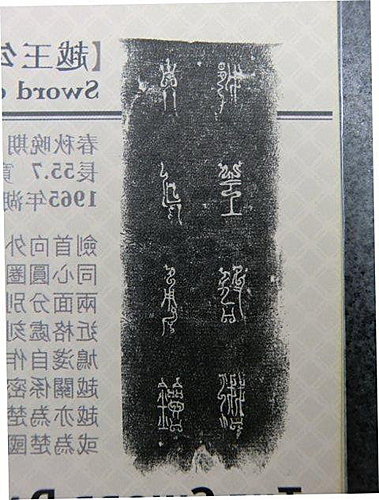 【越王勾
Sword o
春秋晚期
長55.7 寬
1965年湖
劍首向外
同心圓圈
兩面分別
近格處刻
鳩淺自作
越關係密
越亦為楚
或為楚國
戉王鳩淺
自乍用鐱